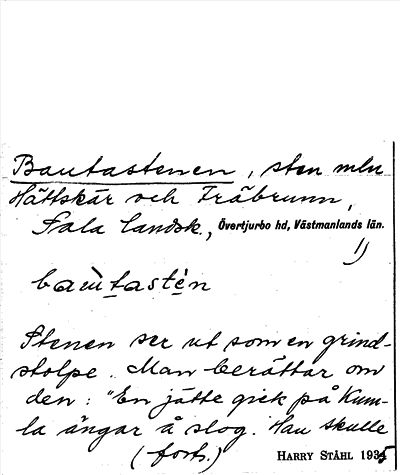 Bautastenen, sten mln
Hättskär och Träbrunn,
Sala landsk., Övertjurbo hd, Västmanlands län.
1)
bau̇tastén
Stenen ser ut som en grind-
stolpe. Man berättar om
den: "En jätte gick på Kum-
la ängar å slog. Han skulle
(forts.) HARRY STÅHL 1935